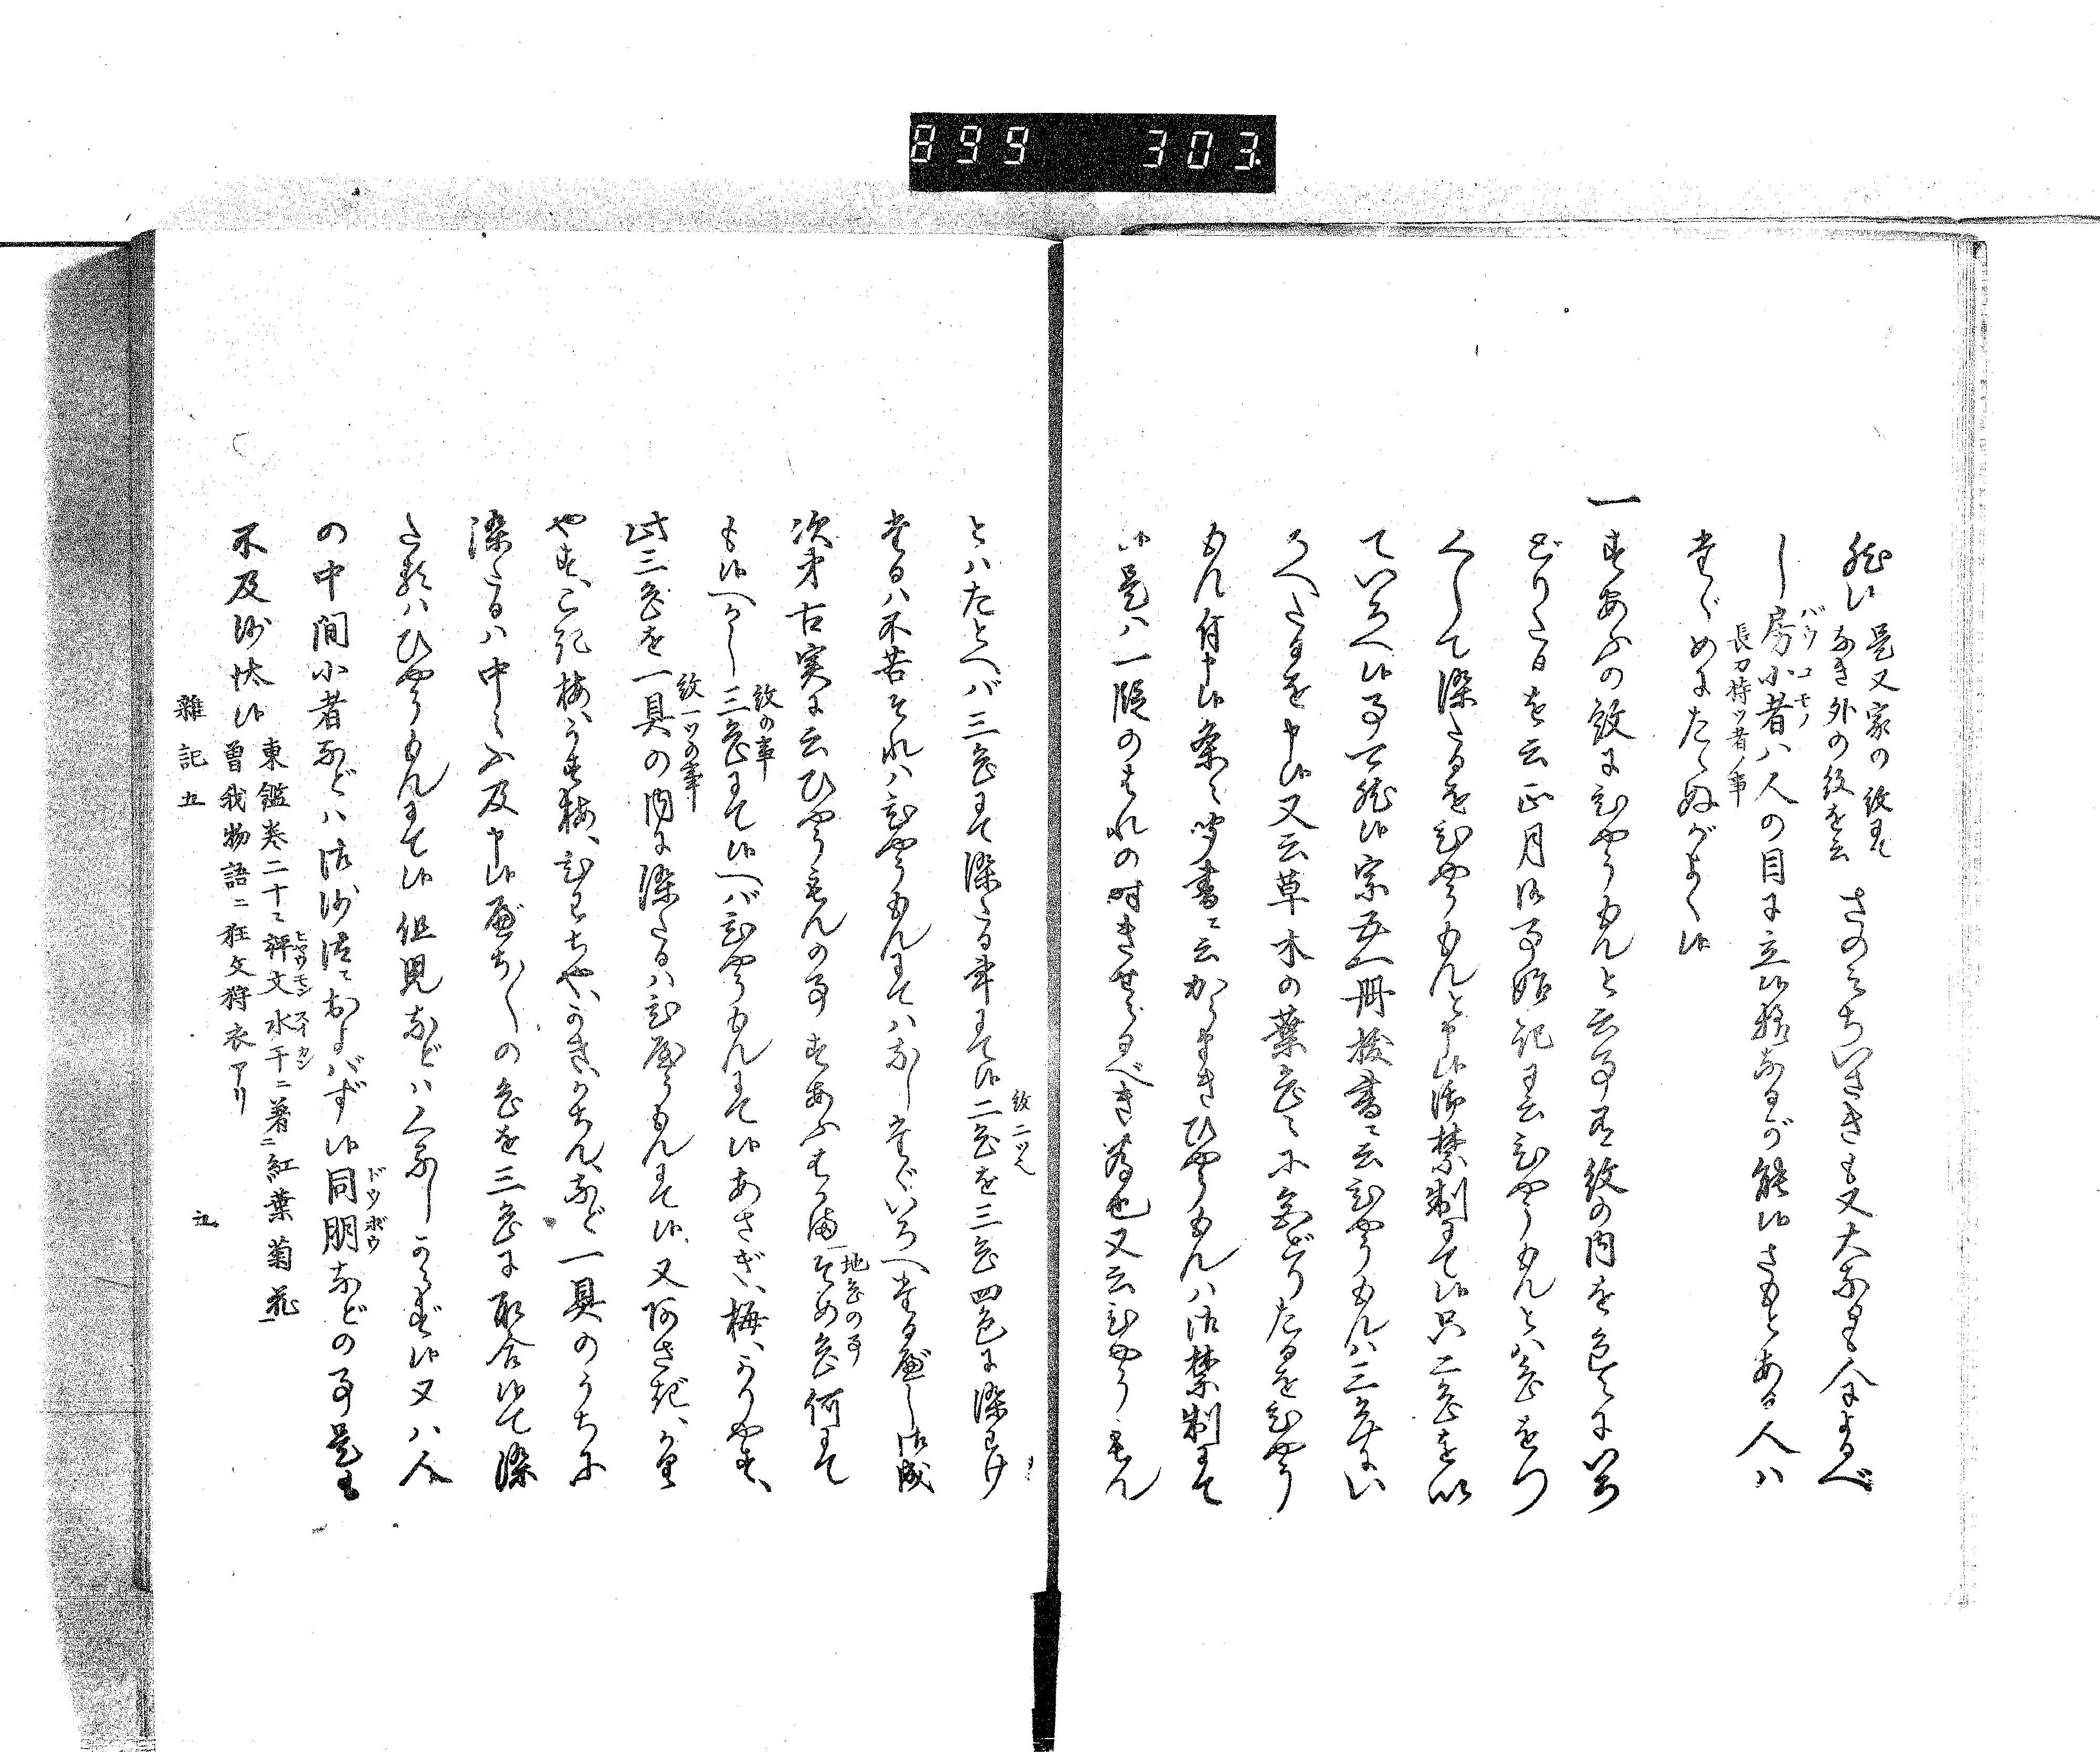 899 303
是又家の紋にて
なき外の紋を云
さのみちいさきも又大なるも余よるべ
し房小者ハ人の目に立候様なるが能候さもとある人ハ
バウ コモノ
長刀持ツ者ノ事
たゞめにたゝぬがよく候
一すあふの紋にひやうもんと云事有紋の内を色々にいろ
どりたるを云正月御事始記云ひやうもんとハ色をつ
くして染たるをひやうもんと申候御禁制にて候只二色を以
ていろへ候事可然候宗五一冊抜書ニ云ひやうもんハ三色にい
ろへたるを申候又云草木の葉色々に色どりたるをひやう
もん付申候条々聞書ニ云かちにきひやうもんハ御禁制にて
候是ハ一段のはれの時きせらるべき為也又云ひやうもん
とハたとへバ三色にて染たる事にて候二色を三色四色に染わけ
紋二ツ也
たるハ不苦それハひやうもんにてハなしたゞいろへたる成べし御成
次第古実に云ひやうもんの事すあふはかま そめ色何にて
地色の事
も候へかし三色にて候へバひやうもんにて候あさぎ、梅、かりやす、
紋の事
此三色を一具の内に染たるハひやうもんにて候又あさぎ、かき
紋一ツの事
やす、こき梅、うす梅、ひわちや、かき、かちん、など一具のうちに
染たるハ中々不及申候 の色を三色に取合候て染
た類ハひやうもんにて候但児などハくるしからず候又ハ人
の中間小者などハ御沙汰におよばず候同朋などの事是も
ドウボウ
不及沙汰候
東鑑巻二十ニ評文水干ニ著ニ紅葉菊花一
ヒヤウモン スイカン
曽我物語ニ狂文狩衣アリ
雑記五
五